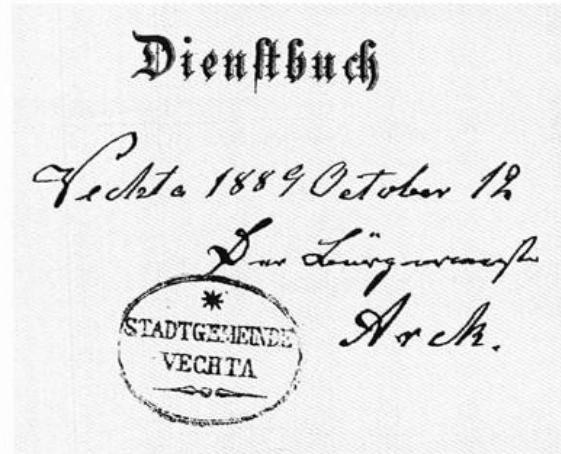 Dienstbuch
Vechta 1889 October 12
Der Bürgermeister
Arck.
STADTGEMEINDE
VECHTA